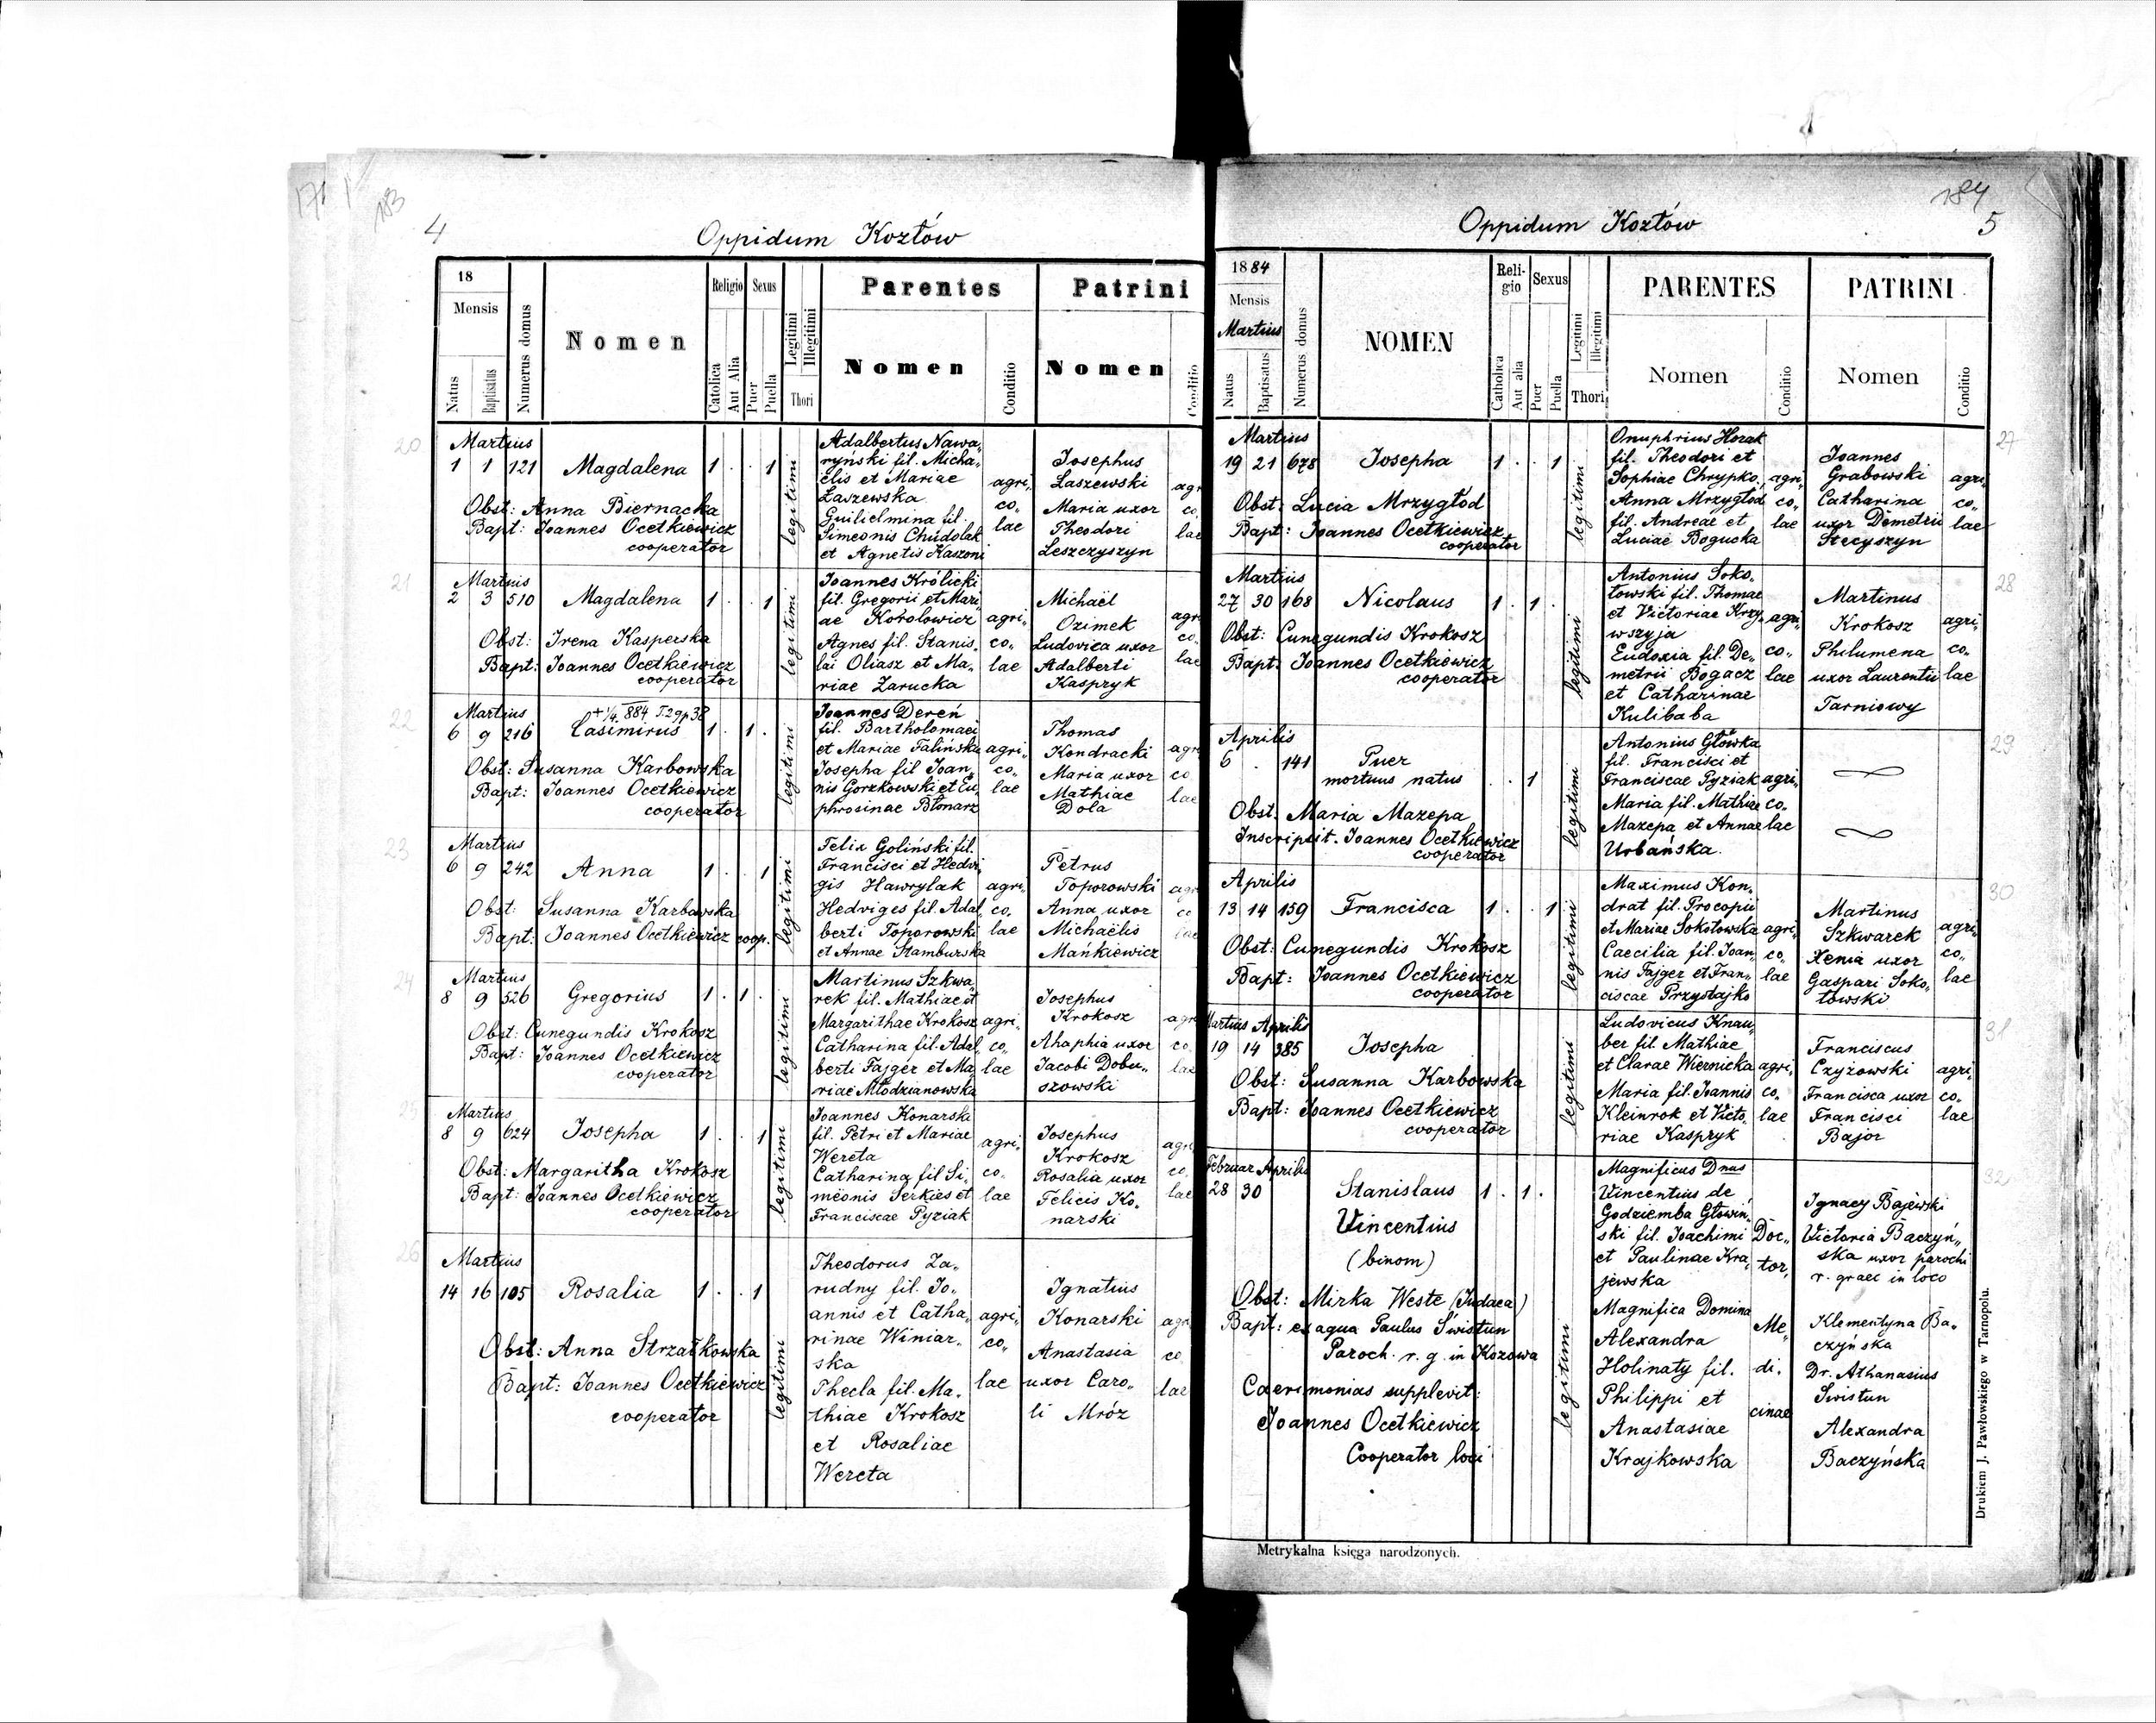 183
4
Oppidum Kozłów
18
Mensis
Natus
Baptisatus
Numerus domus
Nomen
Religio
Catolica
Aut Alia
Sexus
Puer
Puella
Legitimi
Illegitimi
Thori
Parentes
Nomen
Conditio
Patrini
Nomen
Conditio
20
Martius
1 1 121 Magdalena 1 . . 1
Obst: Anna Biernacka
Bapt: Joannes Ocetkiewicz
cooperator
legitimi
Adalbertus Nawa„
ryński fil. Micha„
elis et Mariae
Łaszewska
Guilielmina fil.
Simeonis Chudolak
et Agnetis Kaszoni
agri„
co„
lae
Josephus
Łaszewski
Maria uxor
Theodori
Leszczyszyn
agr
co
lae
21
Martius
2 3 510 Magdalena 1 . . 1
Obst: Irena Kasperska
Bapt: Joannes Ocetkiewicz
cooperator
legitimi
Joannes Królicki
fil. Gregorii et Mari„
ae Korolowicz
Agnes fil. Stanis„
lai Oliasz et Ma„
riae Zarucka
agri„
co„
lae
Michaël
Ozimek
Ludovica uxor
Adalberti
Kaspryk
agri
co„
lae
22
Martius
+ 1/4 884 T.29 p 38
6 9 216 Casimirus 1 . 1 .
Obst: Susanna Karbowska
Bapt: Joannes Ocetkiewicz
cooperator
legitimi
Joannes Dereń
fil. Bartholomaei
et Mariae Falińska
Josepha fil Joan„
nis Gorzkowski et Eu„
phrosinae Błonarz
agri„
co„
lae
Thomas
Kondracki
Maria uxor
Mathiae
Dola
agr
co
lae
23
Martius
6 9 242 Anna 1 . . 1
Obst: Susanna Karbowska
Bapt: Joannes Ocetkiewicz coop.
legitimi
Felix Goliński fil.
Francisci et Hedvi„
gis Hawrylak
Hedviges fil. Adal„
berti Toporowski
et Annae Stamburska
agri„
co„
lae
Petrus
Toporowski
Anna uxor
Michaëlis
Mańkiewicz
agr
co
lae
24
Martius
8 9 526 Gregorius 1 . 1 .
Obst: Cunegundis Krokosz
Bapt: Joannes Ocetkiewicz
cooperator
legitimi
Martinus Szkwa„
rek fil. Mathiae et
Margarithae Krokosz
Catharina fil. Adal„
berti Fajger et Ma„
riae Młodzianowska
agri„
co„
lae
Josephus
Krokosz
Ahaphia uxor
Jacobi Dobu„
szowski
agri
co
lae
25
Martius
8 9 624 Josepha 1 . . 1
Obst: Margaritha Krokosz
Bapt: Joannes Ocetkiewicz
cooperator
legitimi
Joannes Konarski
fil. Petri et Mariae
Wereta
Catharina fil Si„
meonis Serkies et
Franciscae Pyziak
agri„
co„
lae
Josephus
Krokosz
Rosalia uxor
Felicis Ko„
narski
agri
co
lae
26
Martius
14 16 105 Rosalia 1 . . 1
Obst: Anna Strzałkowska
Bapt: Joannes Ocetkiewicz
cooperator
legitimi
Theodorus Za„
rudny fil. Jo„
annis et Catha„
rinae Winiar„
ska
Thecla fil. Ma„
thiae Krokosz
et Rosaliae
Wereta
agri„
co„
lae
Ignatius
Konarski
Anastasia
uxor Caro„
li Mróz
agr
co
lae
184
5
Oppidum Kozłów
1884
Mensis
Martius
Natus
Baptisatus
Numerus domus
NOMEN
Religio
Catholica
Aut alia
Sexus
Puer
Puella
Legitimi
Illegitimi
Thori
PARENTES
Nomen
Conditio
PATRINI
Nomen
Conditio
27
Martius
19 21 678 Josepha 1 . . 1
Obst: Lucia Mrzygłód
Bapt: Joannes Ocetkiewicz
cooperator
legitimi
Onuphrius Horak
fil. Theodori et
Sophiae Chrypko
Anna Mrzygłod
fil. Andreae et
Luciae Boguska
agri„
co„
lae
Joannes
Grabowski
Catharina
uxor Demetrii
Stecyszyn
agri„
co„
lae
28
Martius
27 30 168 Nicolaus 1 . 1 .
Obst: Cunegundis Krokosz
Bapt: Joannes Ocetkiewicz
cooperator
legitimi
Antonius Soko„
łowski fil. Thomae
et Victoriae Krzy„
wszyja
Eudoxia fil. De„
metrii Bogacz
et Catharinae
Kulibaba
agri„
co„
lae
Martinus
Krokosz
Philumena
uxor Laurentii
Tarniowy
agri„
co„
lae
29
Aprilis
6 . 141 Puer
mortuus natus . . 1
Obst. Maria Mazepa
Inscripsit. Joannes Ocetkiewicz
cooperator
legitimi
Antonius Główka
fil. Francisci et
Franciscae Pyziak
Maria fil. Mathiae
Mazepa et Annae
Urbańska.
agri„
co„
lae
30
Aprilis
13 14 159 Francisca 1 . . 1
Obst: Cunegundis Krokosz
Bapt: Joannes Ocetkiewicz
cooperator
legitimi
Maximus Kon„
drat fil. Procopii
et Mariae Sokołowska
Caecilia fil. Joan„
nis Fajger et Fran„
ciscae Przystajko
agri„
co„
lae
Martinus
Szkwarek
Xenia uxor
Gaspari Soko„
łowski
agri„
co„
lae
31
Martius Aprilis
19 14 385 Josepha
Obst: Susanna Karbowska
Bapt: Joannes Ocetkiewicz
cooperator
legitimi
Ludovicus Knau„
ber fil. Mathiae
et Clarae Wiernicka
Maria fil. Joannis
Kleinrok et Victo„
riae Kaspryk
agri„
co„
lae
Franciscus
Czyżowski
Francisca uxor
Francisci
Bajor
agri„
co„
lae
32
Februar Aprilis
28 30 Stanislaus 1 . 1 .
Vincentius
(binom)
Obst: Mirka Weste (Judaea)
Bapt: ex aqua Paulus Świstun
Paroch. r. g. in Kozowa
Caerimonias supplevit:
Joannes Ocetkiewicz
Cooperator loci
legitimi
Magnificus Dnus
Vincentius de
Godziemba Głowiń„
ski fil. Joachimi
et Paulinae Kra„
jewska
Magnifica Domina
Alexandra
Holinaty fil.
Philippi et
Anastasiae
Krajkowska
Doc„
tor,
Me„
di„
cinae
Ignacy Bajewski
Victoria Baczyń„
ska uxor parochi
r. graec in loco
Klementyna Ba„
czyńska
Dr. Athanasius
Świstun
Alexandra
Baczyńska
Metrykalna księga narodzonych.
Drukiem J. Pawłowskiego w Tarnopolu.